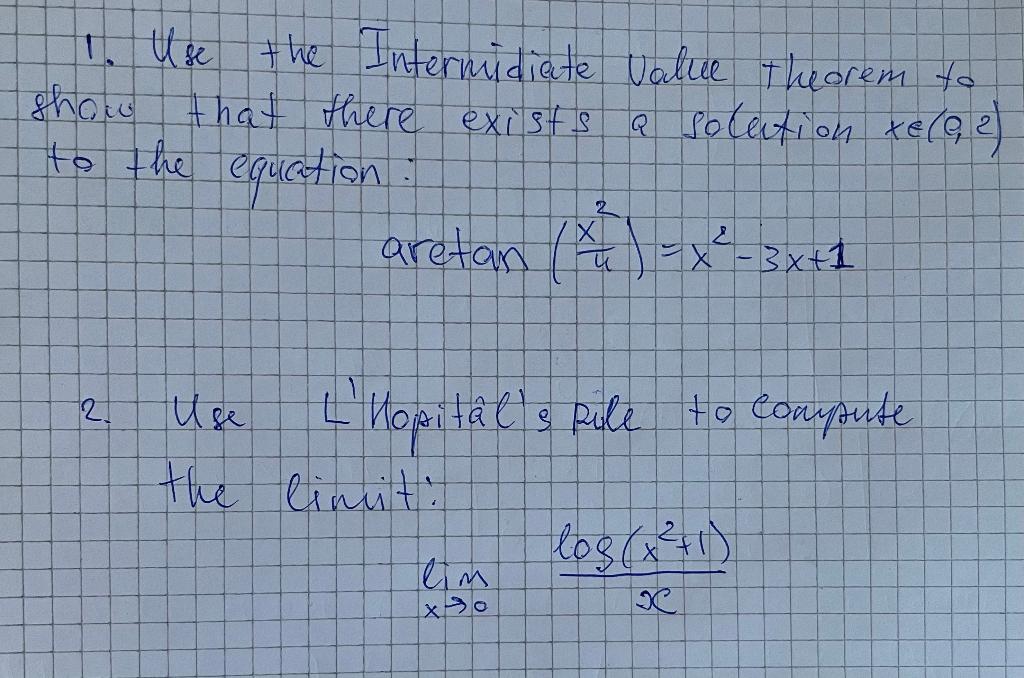 1. Use the Intermidiate Value Theorem to
show that there exists a solution x∈(0,2)
to the equation:
arctan (x²/4) = x² - 3x + 1
2. Use L'Hopitâl's Rule to compute
the limit:
lim x→0 log(x²+1) / x